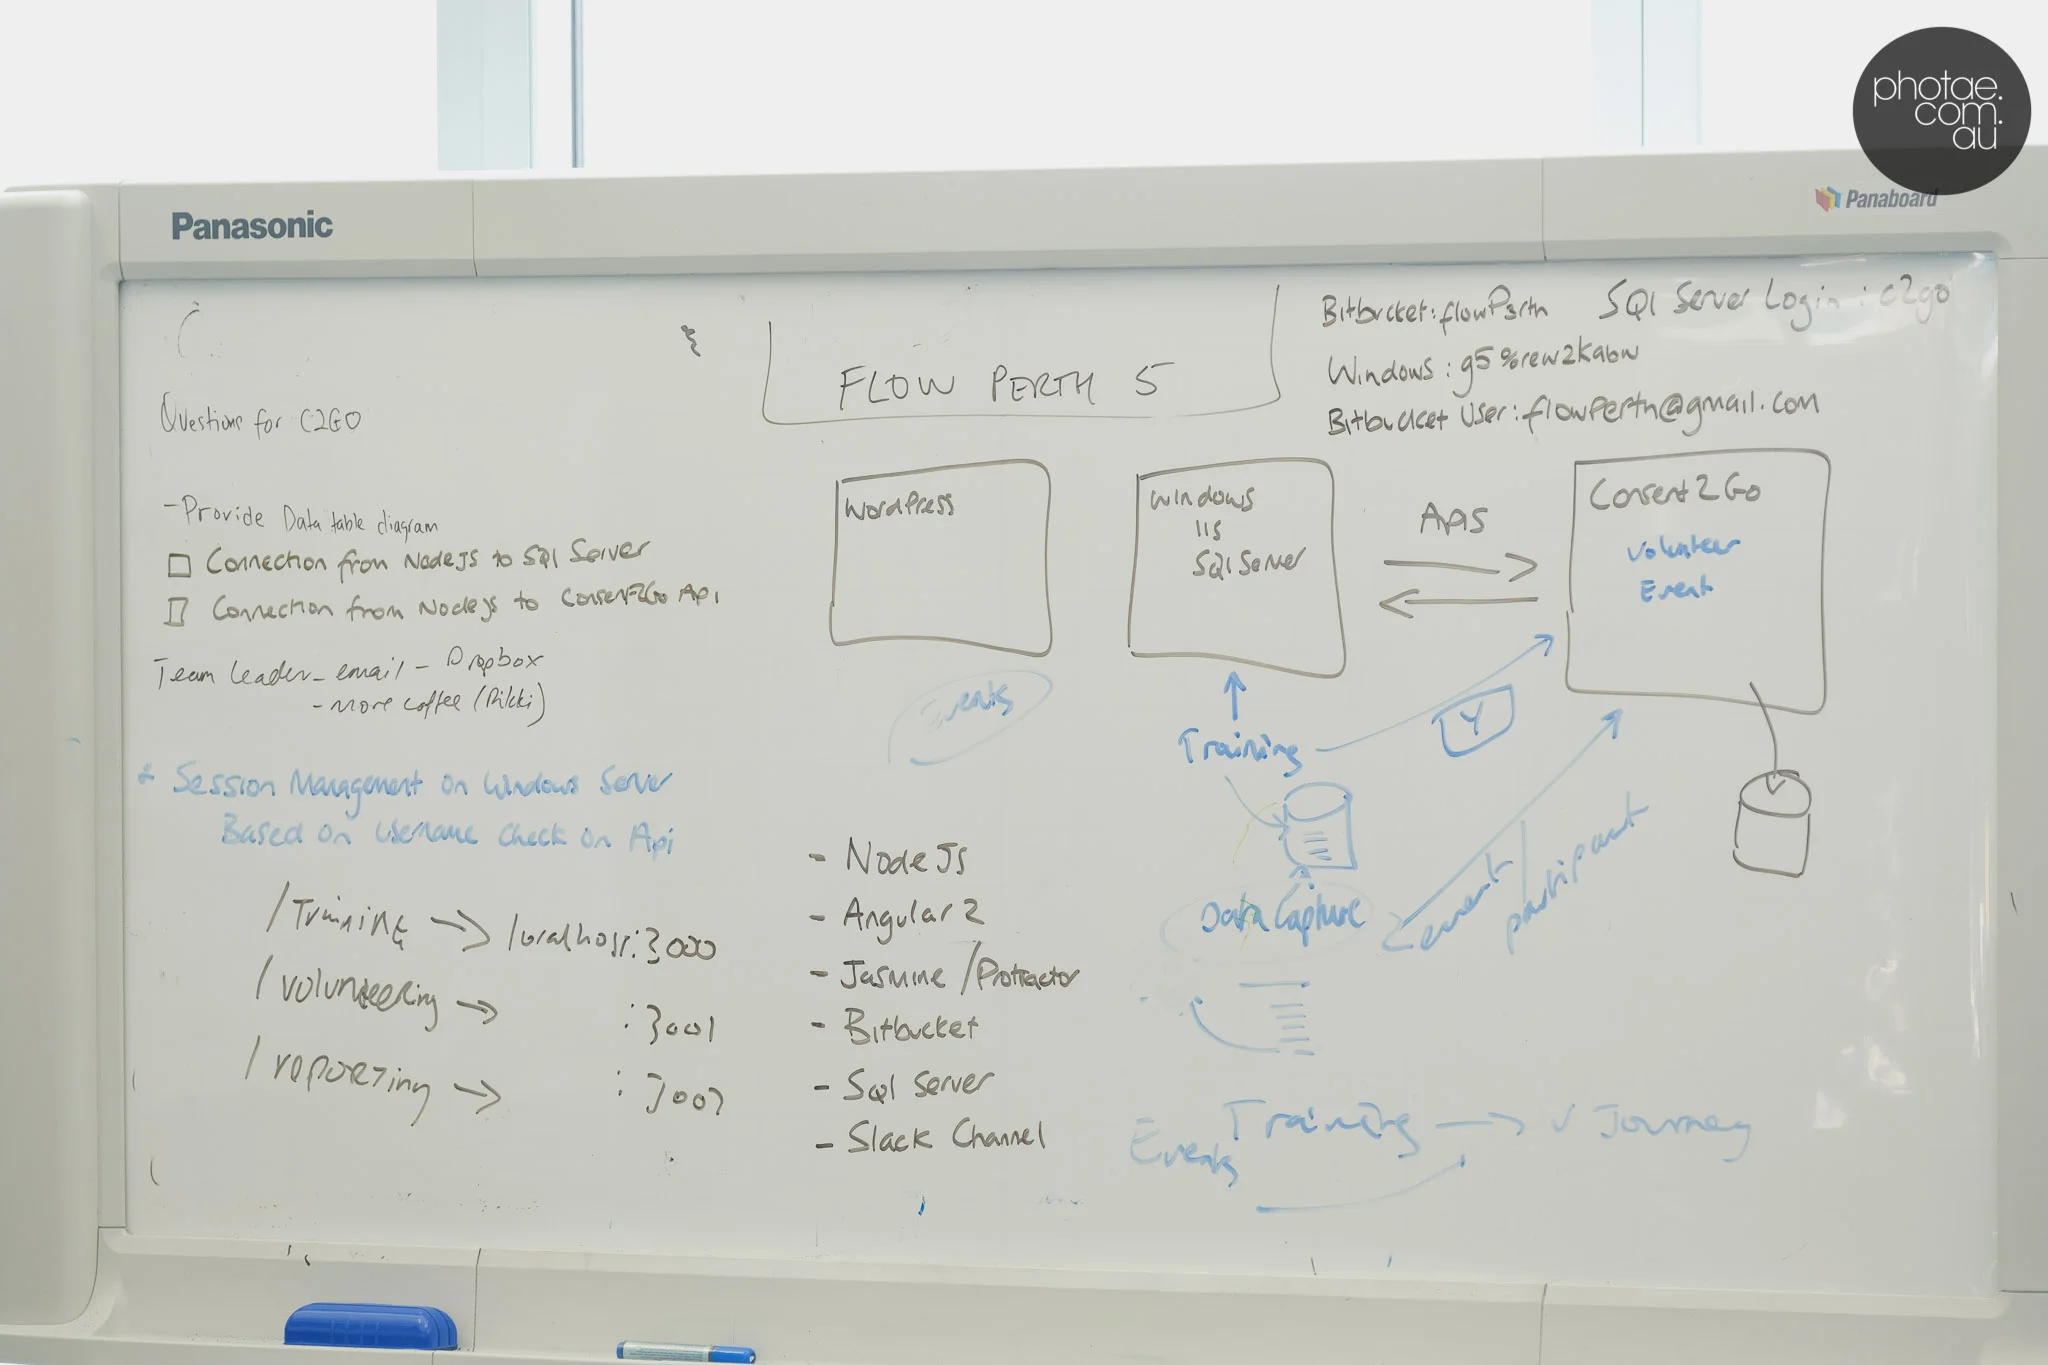 photae.
com.
au
Panasonic
Panaboard
Bitbucket: flowP3rth
SQl Server Login : c2go
Windows : g5%rew2kabw
Bitbucket User: flowperth@gmail.com
FLOW PERTH 5
Questions for C2GO
- Provide Data table diagram
Connection from NodeJS to SQl Server
Connection from Nodejs to Consent2Go Api
Team Leader - email - Dropbox
- More coffee (Rikki)
* Session Management on Windows Server
Based on username check on Api
/Training → localhost:3000
/volunteering → :3001
/reporting → :3002
WordPress
Events
Windows
IIS
SQl Server
APIS
Consent2Go
Volunteer
Event
Training
Y
Data Capture
event / participant
- Node JS
- Angular 2
- Jasmine / Protractor
- Bitbucket
- Sql Server
- Slack Channel
Training → V Journey
Events